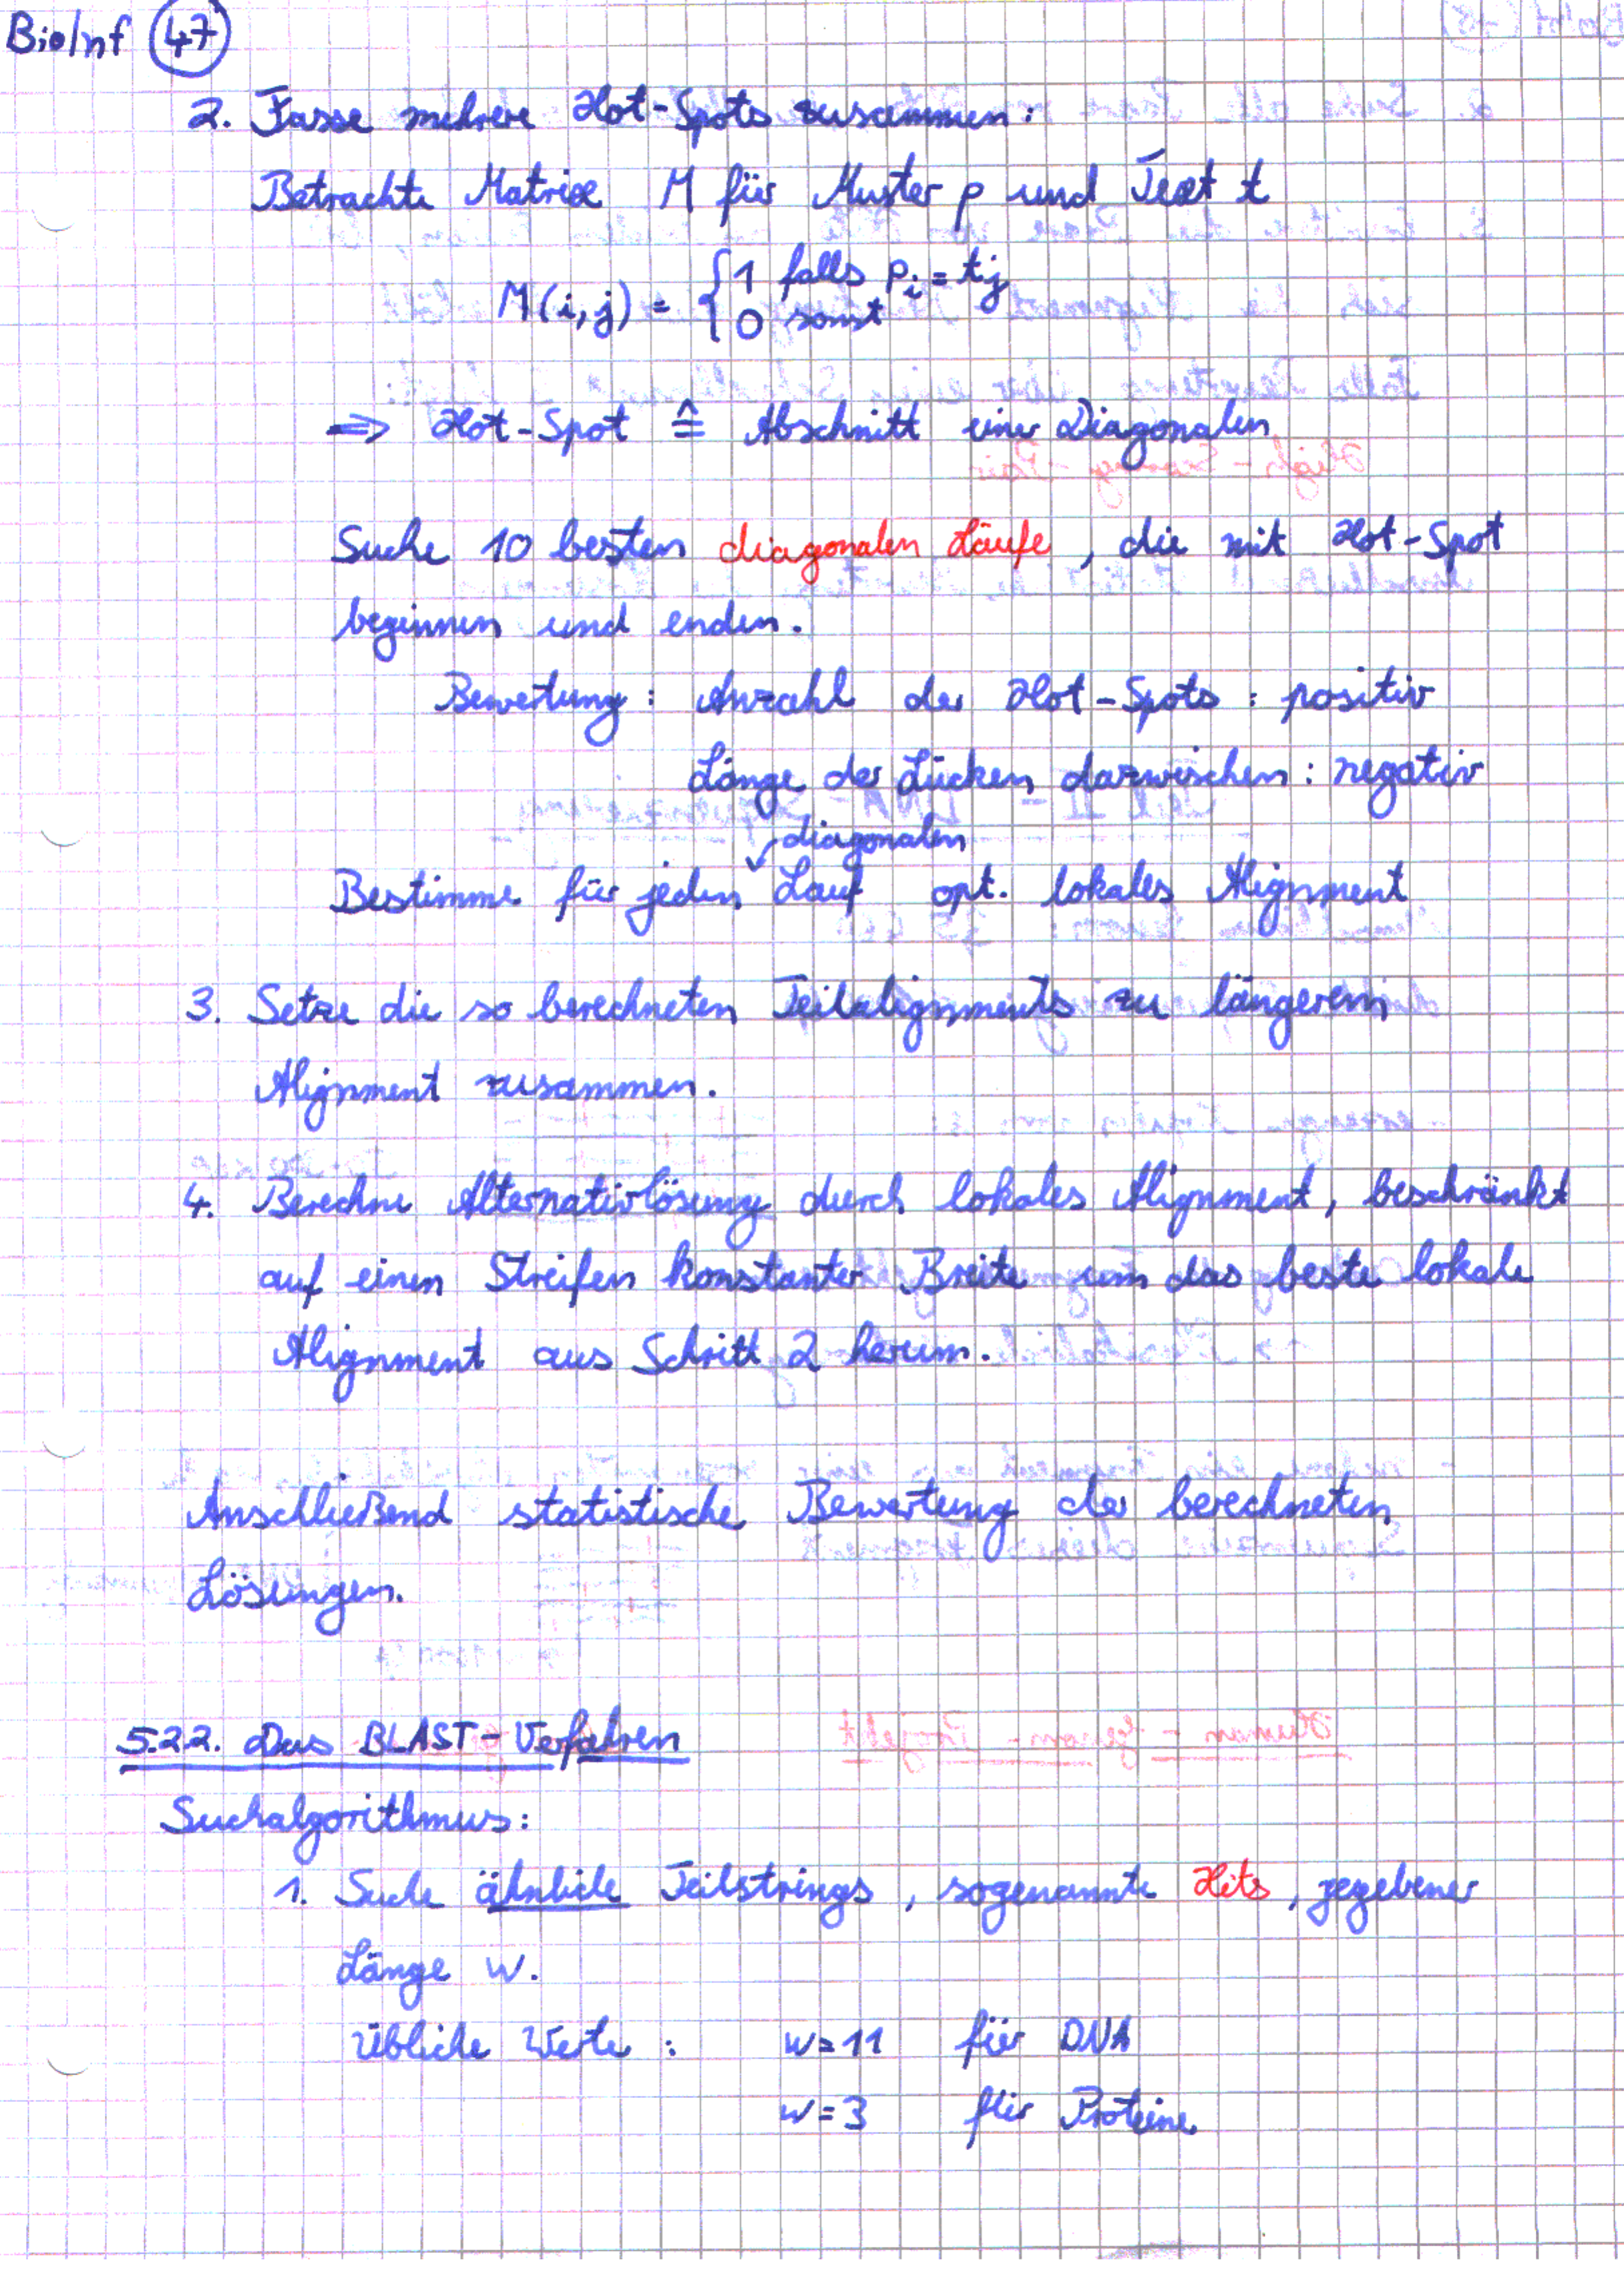 BioInf 47
2. Fasse mehrere Hot-Spots zusammen:
Betrachte Matrix M für Muster p und Text t
M(i,j) = { 1 falls p_i = t_j
0 sonst
⇒ Hot-Spot ≙ Abschnitt einer Diagonalen
Suche 10 besten diagonalen Läufe, die mit Hot-Spot
beginnen und enden.
Bewertung: Anzahl der Hot-Spots: positiv
Länge der Lücken dazwischen: negativ
diagonalen
Bestimme für jeden Lauf opt. lokales Alignment
3. Setze die so berechneten Teilalignments zu längerem
Alignment zusammen.
4. Berechne Alternativlösung durch lokales Alignment, beschränkt
auf einen Streifen konstanter Breite um das beste lokale
Alignment aus Schritt 2 herum.
Anschließend statistische Bewertung der berechneten
Lösungen.
5.2.2. Das BLAST-Verfahren
Suchalgorithmus:
1. Suche ähnliche Teilstrings, sogenannte Hits, gegebener
Länge w.
Übliche Werte: w=11 für DNA
w=3 für Proteine